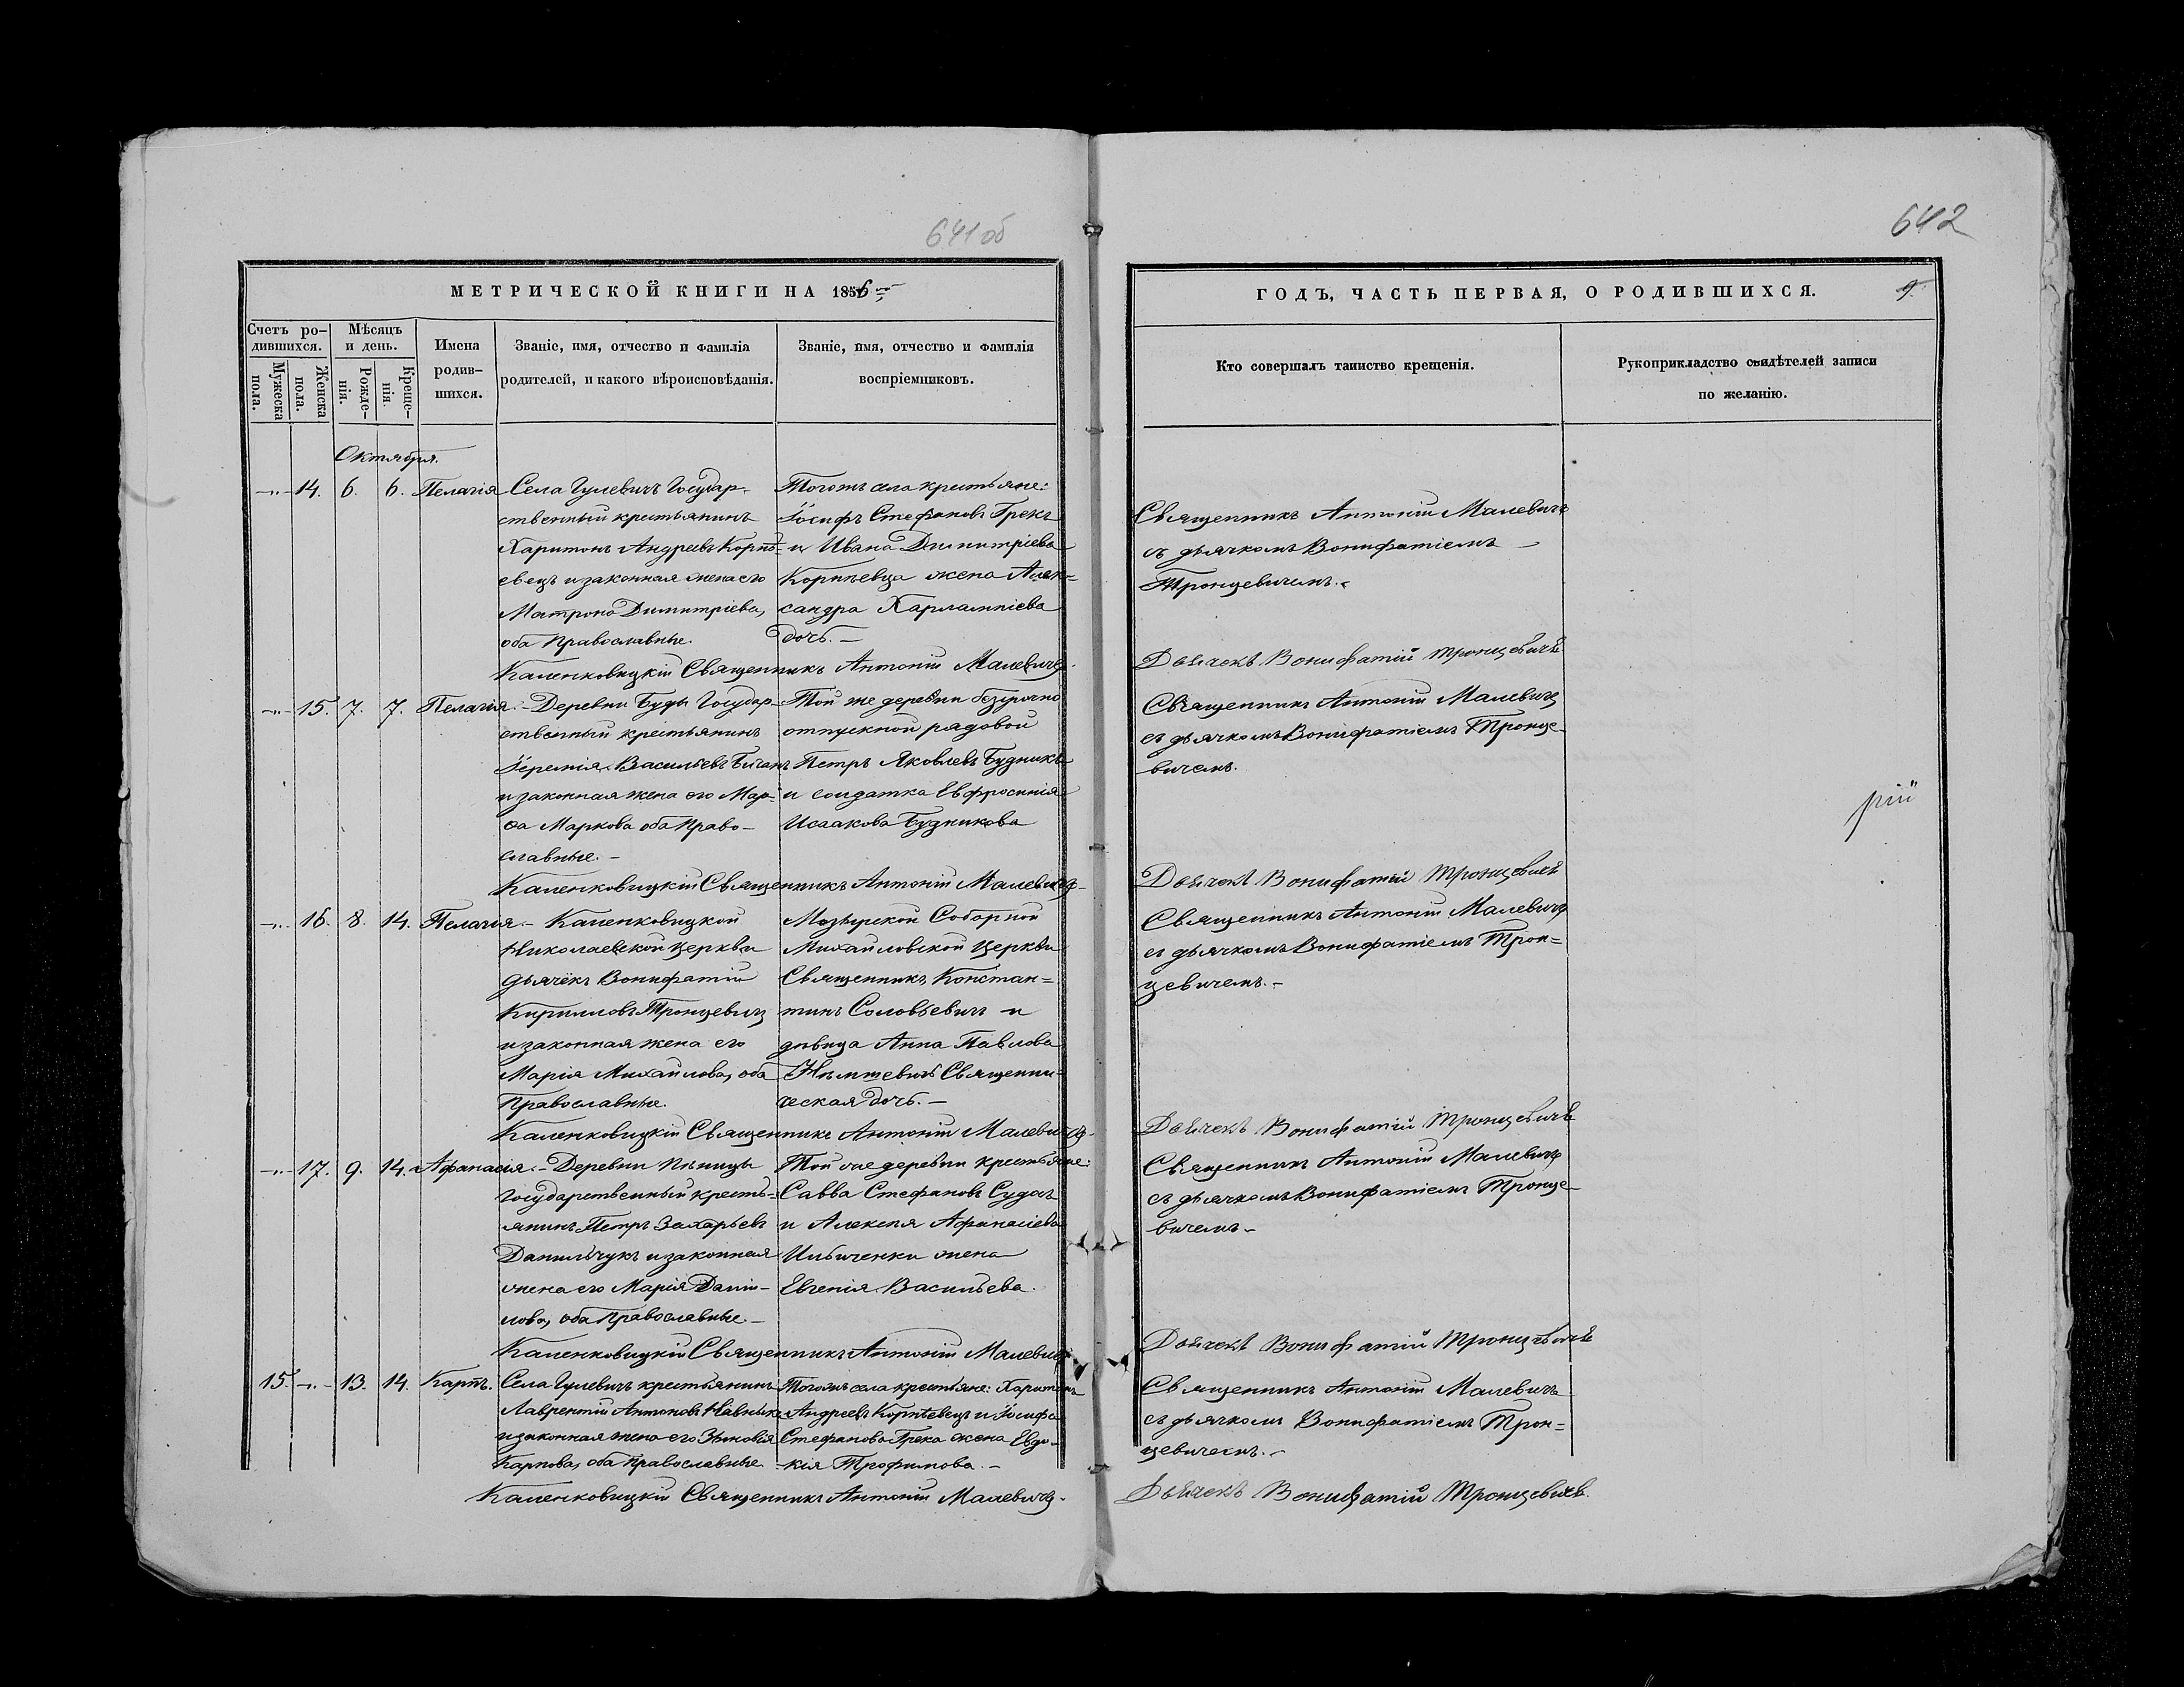 641 об
642
МЕТРИЧЕСКОЙ КНИГИ НА 1856
ГОДЪ, ЧАСТЬ ПЕРВАЯ, О РОДИВШИХСЯ.
9.
Счетъ ро-
дившихся.
Мѣсяцъ
и день.
Мужеска
пола.
Женска
пола.
Рожде-
нія.
Креще-
нія.
Имена
родив-
шихся.
Званіе, имя, отчество и фамилія
родителей, и какого вѣроисповѣданія.
Званіе, имя, отчество и фамилія
воспріемниковъ.
Кто совершалъ таинство крещенія.
Рукоприкладство свидѣтелей записи
по желанію.
Октября.
-"- 14. 6. 6. Пелагія
Села Гулевичъ Государ-
ственный крестьянинъ
Харитонъ Андреевъ Корнѣ-
евецъ и законная жена его
Матрона Димитріева,
оба Православные.
Тогожъ села крестьяне:
Іосифъ Стефановъ Грекъ
и Ивана Димитріева
Корнѣевца жена Алек=
сандра Харлампіева
дочь. —
Священникъ Антоній Малевичъ
съ дьячкомъ Вонифатіемъ
Тронцевичемъ.
Каленковицкій Священникъ Антоній Малевичъ.
Дьячекъ Вонифатій Тронцевичъ
-"- 15. 7. 7. Пелагія. -
Деревни Буды Государ-
ственный крестьянинъ
Іеремія Васильевъ Биганъ
и законная жена его Мар-
ѳа Маркова оба Право-
славные. -
Той же деревни безсрочно
отпускной рядовой
Петръ Яковлевъ Будникъ
и солдатка Евфросинія
Исаакова Будникова
Священникъ Антоній Малевичъ
съ дьячкомъ Вонифатіемъ Тронце-
вичемъ.
рій
Каленковицкій Священникъ Антоній Малевичъ-
Дьячекъ Вонифатій Тронцевичъ
-"- 16. 8. 14. Пелагія. -
Каленковицкой
Николаевской церкви
дьячекъ Вонифатій
Кирилловъ Тронцевичъ
и законная жена его
Марія Михайлова, оба
Православные.
Мозырской Соборной
Михайловской церкви
Священникъ Констан=
тинъ Соловьевичъ и
дѣвица Анна Павлова
Нѣмшевичъ Священни-
ческая дочь. —
Священникъ Антоній Малевичъ
съ дьячкомъ Вонифатіемъ Трон=
цевичемъ. -
Каленковицкій Священникъ Антоній Малевичъ-
Дьячекъ Вонифатій Тронцевичъ
-"- 17. 9. 14. Афанасія. -
Деревни
Государственный кресть-
янинъ Петръ Захарьевъ
Данильчукъ и законная
жена его Марія Дани-
лова, оба Православные. -
Той же деревни крестьяне:
Савва Стефановъ Судасъ
и Алексѣя Афанасіева
Ильиченки жена
Евгенія Васильева.
Священникъ Антоній Малевичъ
съ дьячкомъ Вонифатіемъ Тронце-
вичемъ -
Каленковицкій Священникъ Антоній Малевичъ
Дьячекъ Вонифатій Тронцевичъ
15. -"- 13. 14. Карпъ.
Села Гулевичъ крестьянинъ
Лаврентій Антоновъ
и законная жена его Зѣновія
Карпова, оба Православные.
Тогожъ села крестьяне: Харитонъ
Андреевъ Корнѣевецъ и Іосифа
Стефанова Грека жена Евдо-
кія Трофимова. -
Священникъ Антоній Малевичъ
съ дьячкомъ Вонифатіемъ Трон=
цевичемъ. -
Каленковицкій Священникъ Антоній Малевичъ.
Дьячекъ Вонифатій Тронцевичъ.